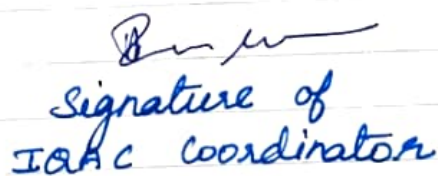 Signature of
IQAC Coordinator